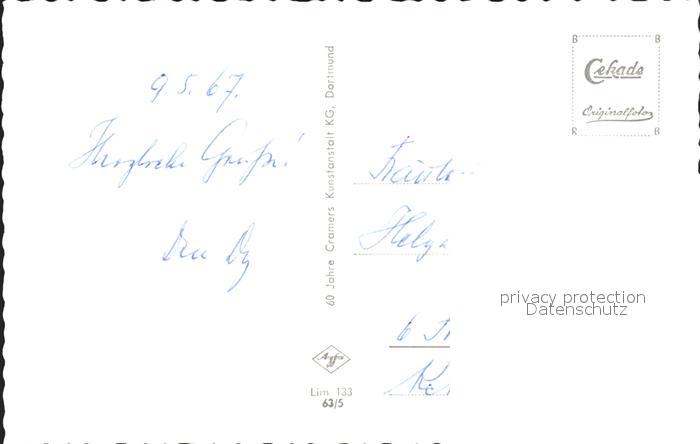 9.5.67.
Herzliche Grüße!
60 Jahre Cramers Kunstanstalt KG, Dortmund
Agfa
Lim 133
63/5
B B
Cekade
Originalfoto
R B
Fräulein
Helga
6
privacy protection
Datenschutz